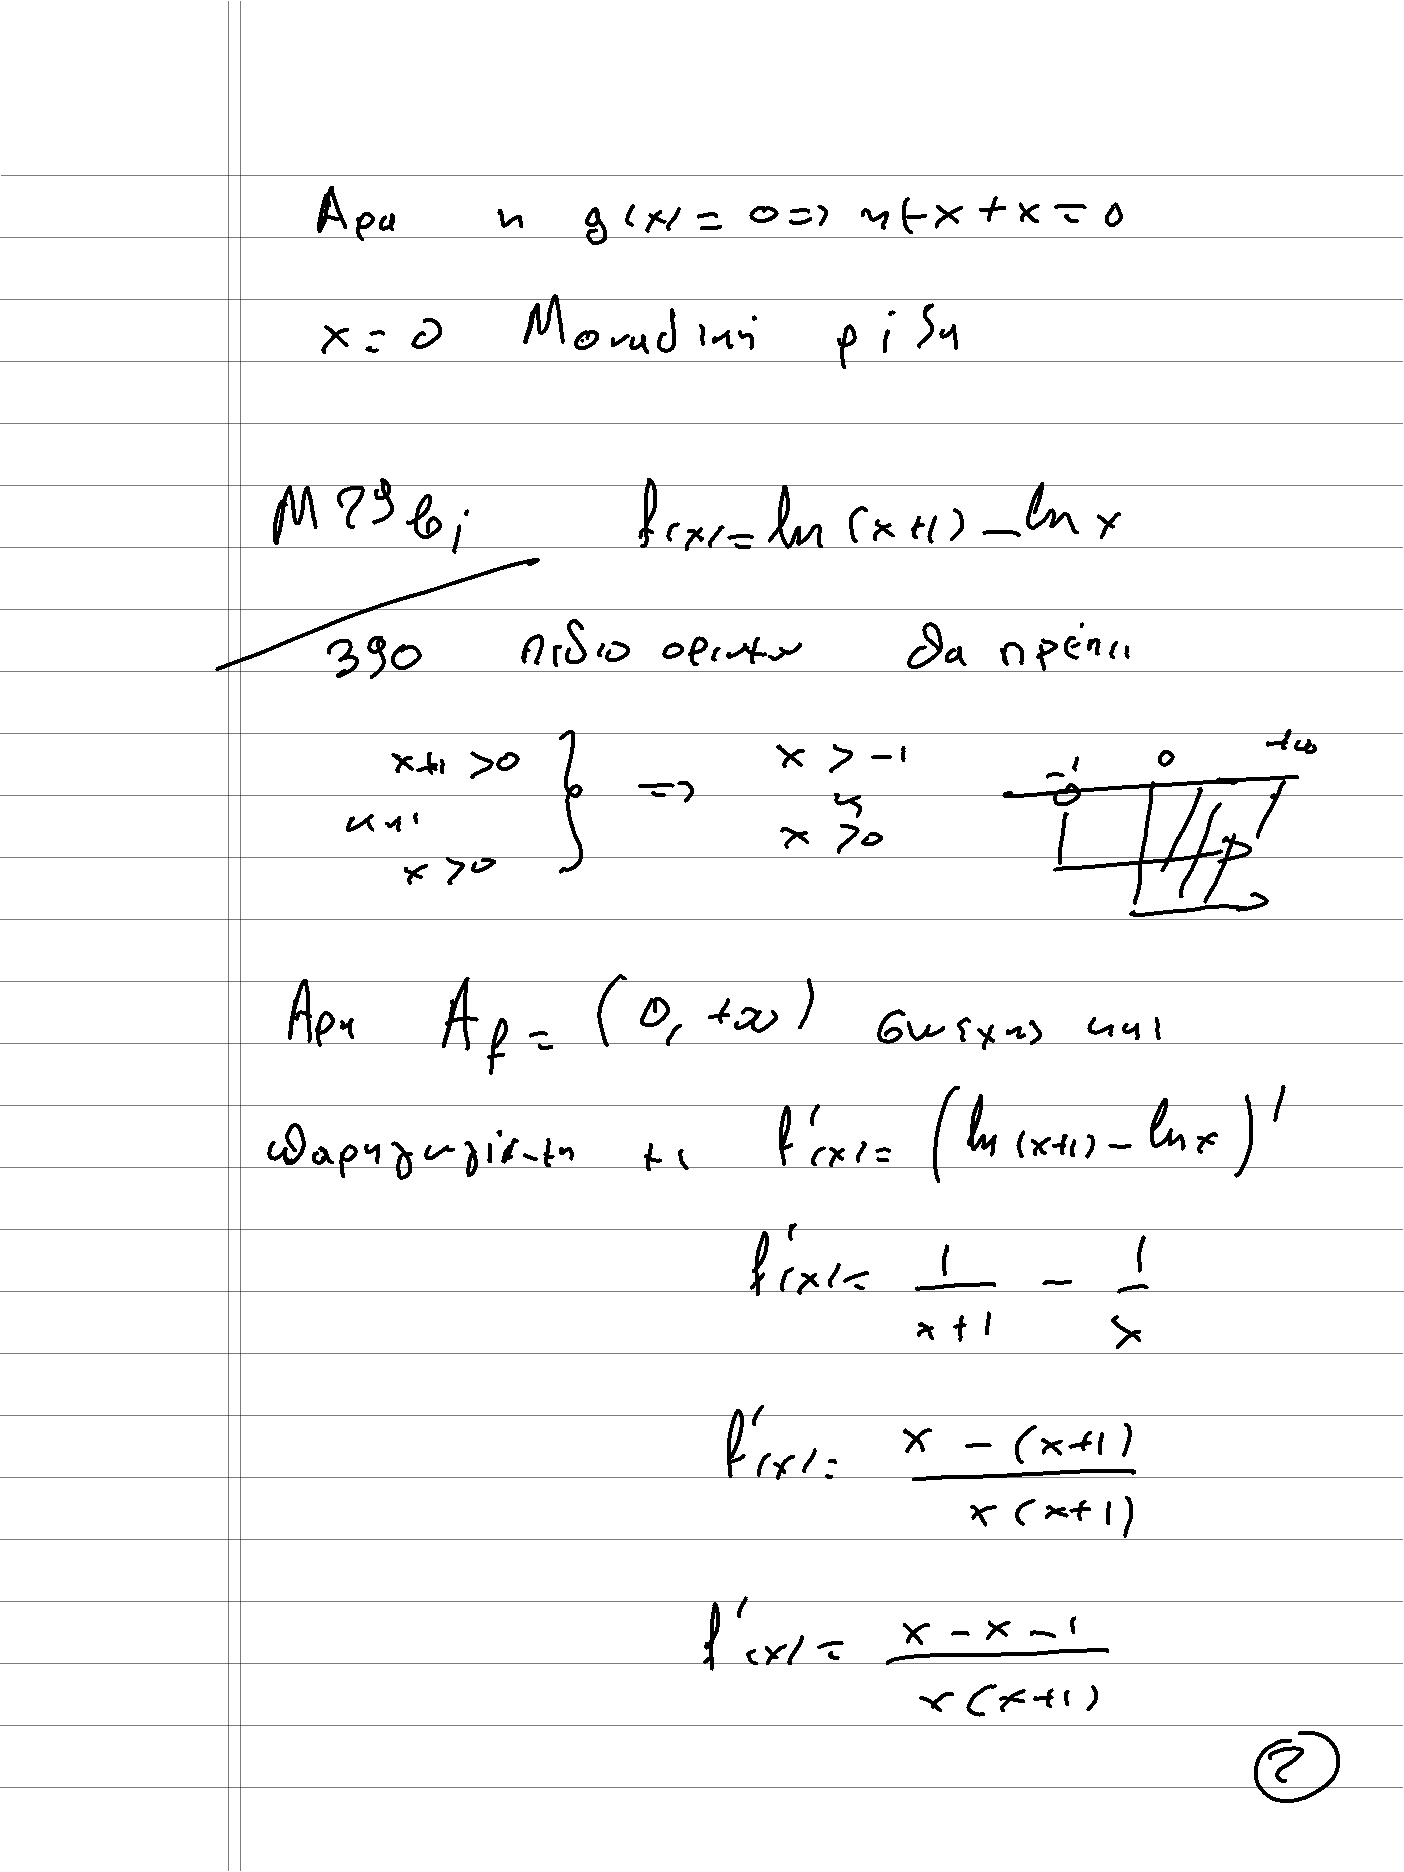 Άρα η g(x) = 0 => ηx + x = 0
x = 0 Μοναδική ρίζα
Μ79 β; f(x) = ln(x+1) - ln x
390 πεδίο ορισμού θα πρέπει
x+1 >0 => x > -1 -1 0 +∞
και
x >0 x >0
Άρα A f = (0, +∞) συνεχής και
παραγωγίσιμη με f'(x) = (ln(x+1) - ln x)'
f'(x) = 1/(x+1) - 1/x
f'(x) = (x - (x+1))/(x(x+1))
f'(x) = (x - x - 1)/(x(x+1))
2